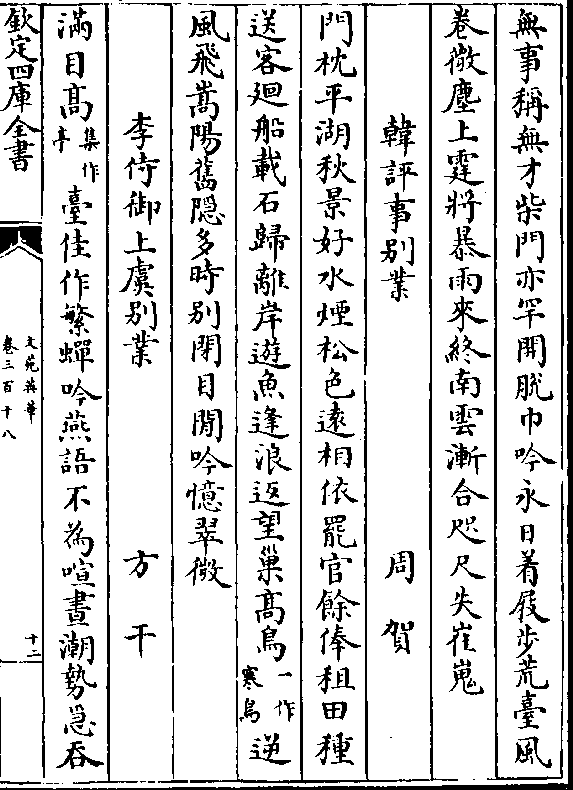 無事稱無才柴門亦罕開脱巾吟永日着屐步荒臺風
卷微塵上霆將暴雨來終南雲漸合咫尺失崔嵬
韓評事别業 周賀
門枕平湖秋景好水煙松色遠相依罷官餘俸租田種
送客廻船載石歸離岸遊魚逢浪返望巢髙鳥一作寒鳥逆
風飛嵩陽舊隠多時别閉目閒吟憶翠微
李侍御上虞别業 方干
滿目髙集作亭臺佳作繁蟬吟燕語不為喧晝潮勢急呑
欽定四庫全書
文苑英華
卷三百十八
十二